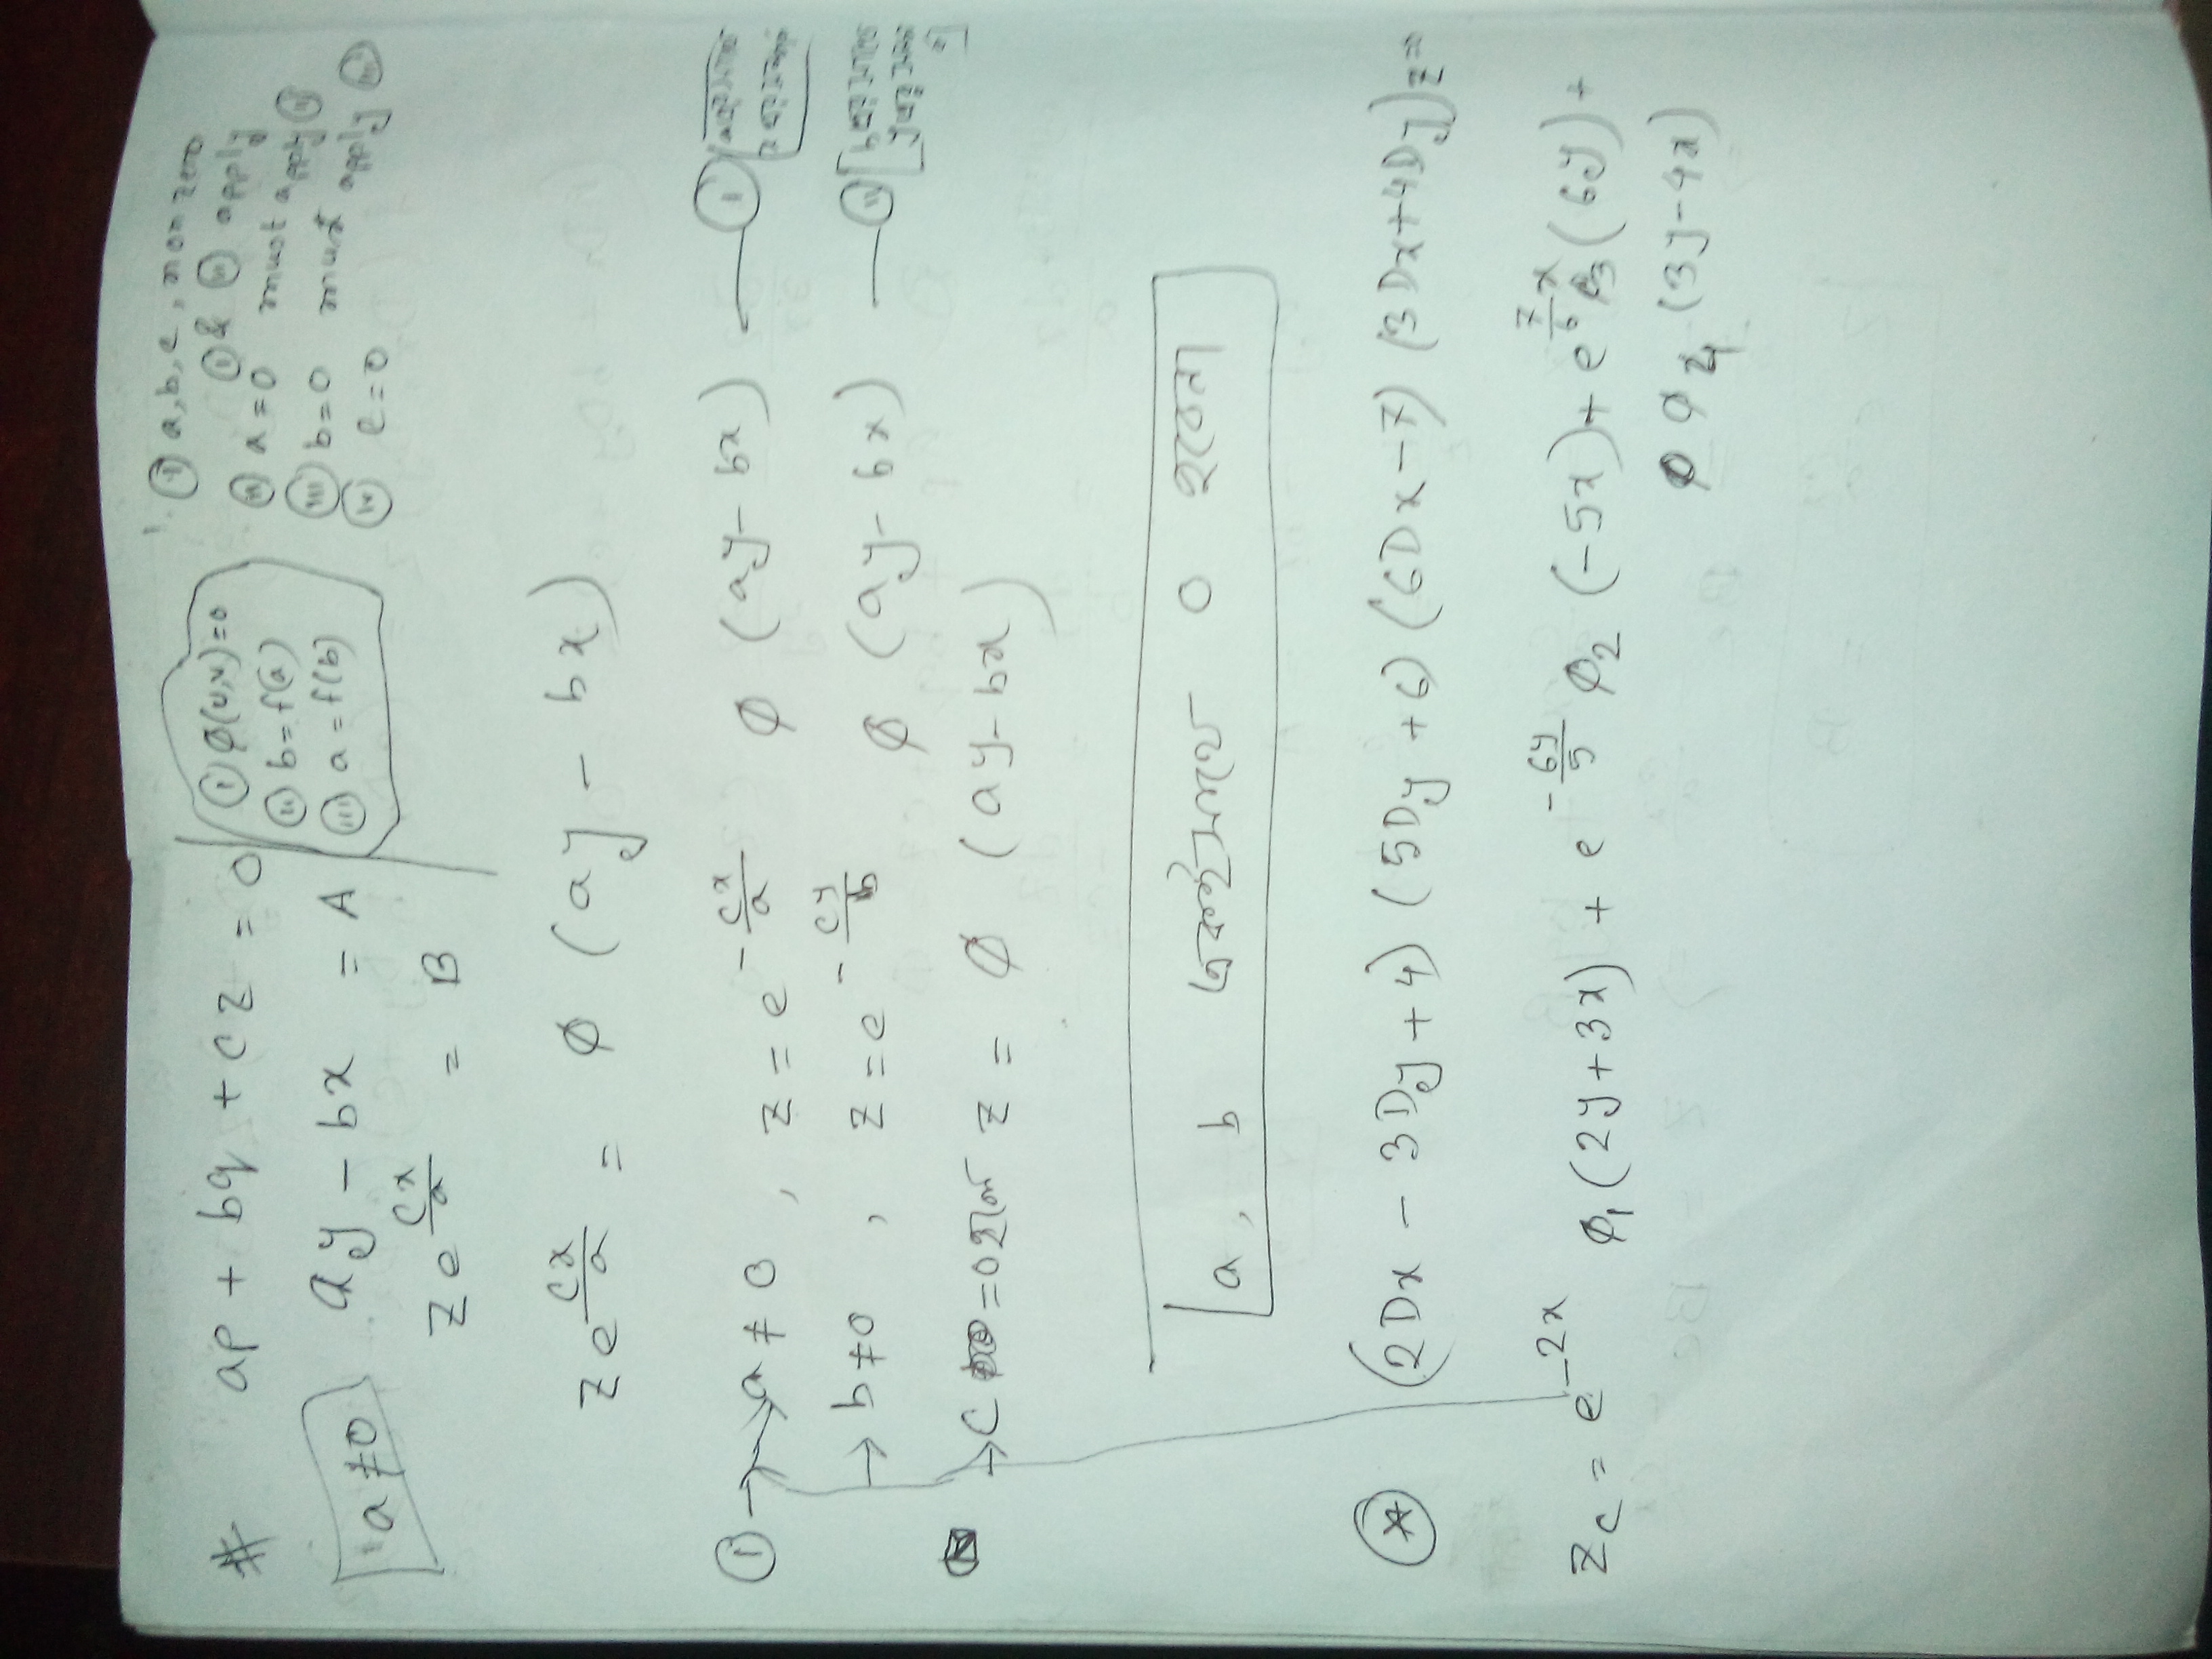 # ap + bq + cz = 0
a ≠ 0
ay - bx = A
z e^{cx/a} = B
(i) φ(u,v)=0
(ii) b = f(a)
(iii) a = f(b)
(i) a, b, c, non zero
(i) & (ii) apply
(ii) a = 0 must apply (ii)
(iii) b = 0 must apply
(iv) c = 0
z e^{cx/a} = φ (ay - bx)
(i) → a ≠ 0, z = e^{-cx/a} φ (ay - bx) — (i)
→ b ≠ 0, z = e^{-cy/b} φ (ay - bx) — (ii)
→ c = 0 হলে z = φ (ay - bx)
a, b 0 হবেনা
(*) (2Dx - 3Dy + 4) (5Dy + 6) (6Dx - 7) (3Dx + 4Dy) z = 0
z_c = e^{-2x} φ₁ (2y + 3x) + e^{-6y/5} φ₂ (-5x) + e^{7/6 x} φ₃ (6y) +
φ₄ (3y - 4x)